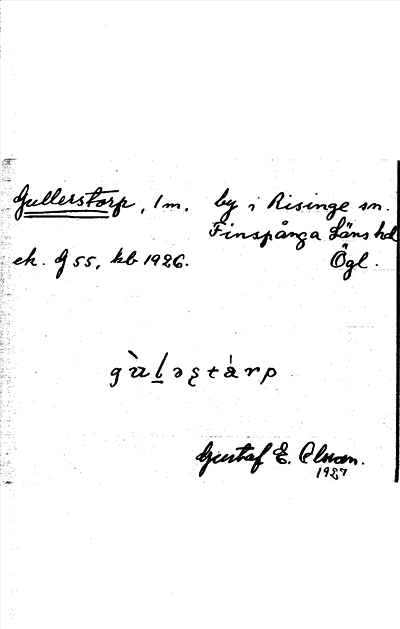 Gullerstorp, 1 m. by i Risinge sn.
Finspånga Läns hd
ek. J 55, kb 1926. Ögl.
gùl̠əʂtárp
Gustaf E. Olsson.
1927